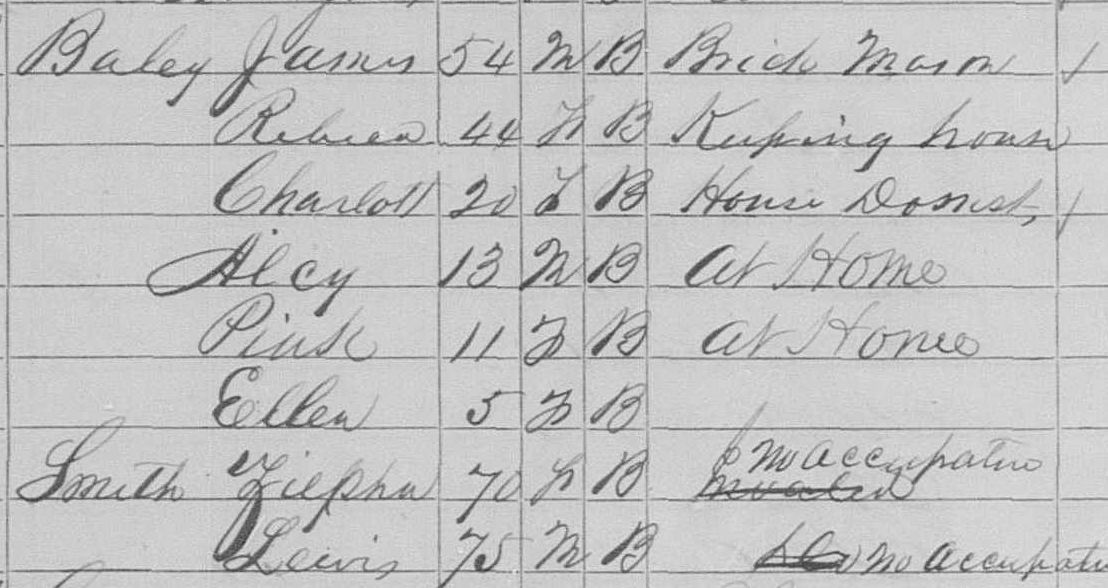 Baley James 54 M B Brick Mason
Rebeca 44 F B Keeping house
Charlott 20 F B House Domest,
Alcy 13 M B At Home
Pink 11 F B At Home
Ellen 5 F B
Smith Zilpha 70 F B No Accupatio
Lewis 75 M B No Accupatio